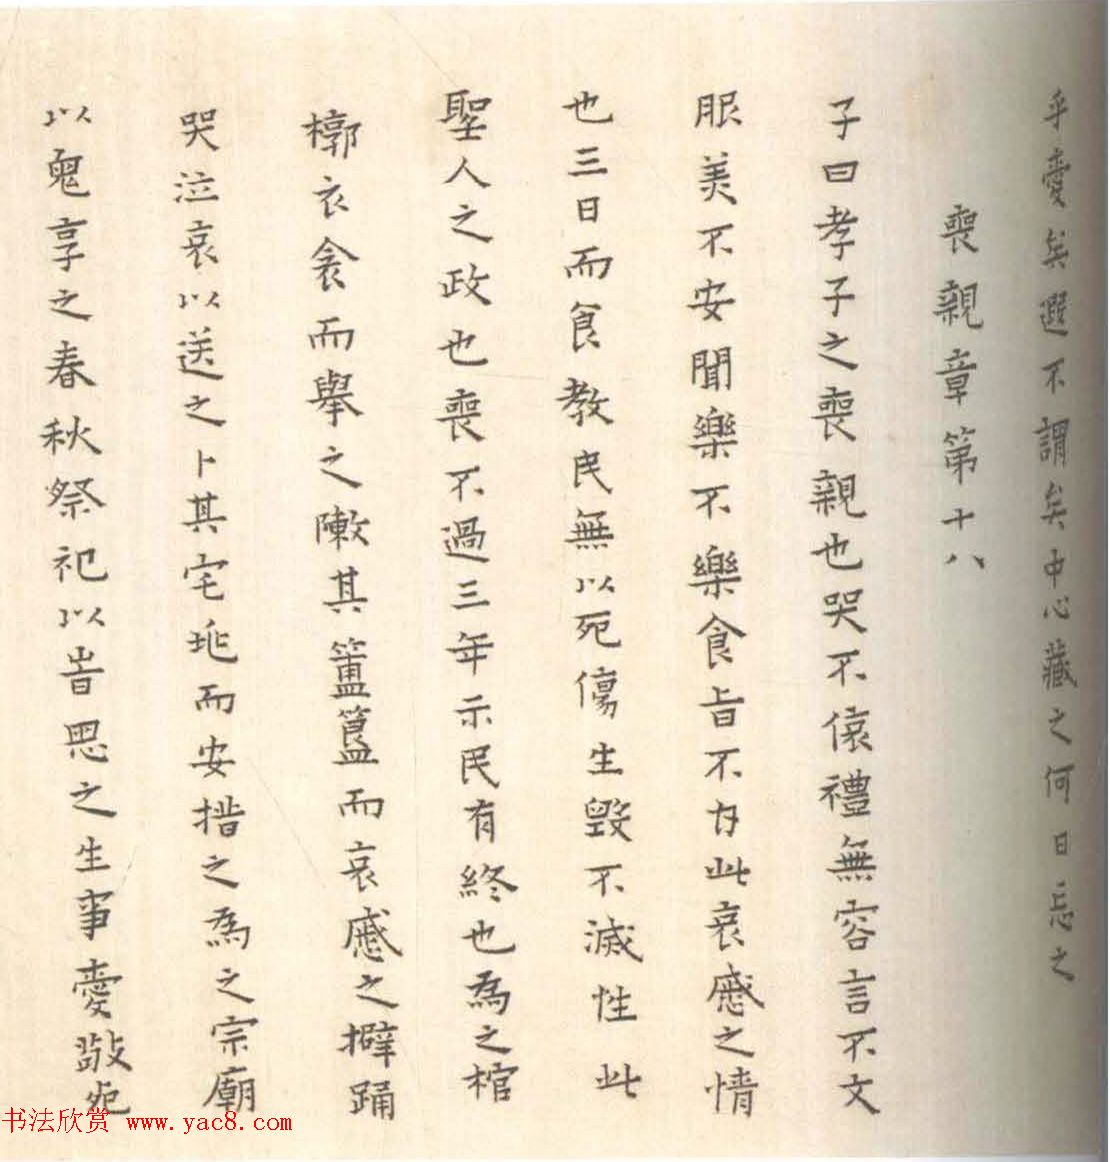 乎愛矣遐不謂矣中心藏之何日忘之
喪親章第十八
子曰孝子之喪親也哭不偯禮無容言不文
服美不安聞樂不樂食旨不甘此哀慼之情
也三日而食教民無以死傷生毀不滅性此
聖人之政也喪不過三年示民有終也為之棺
槨衣衾而舉之陳其簠簋而哀慼之擗踊
哭泣哀以送之卜其宅兆而安措之為之宗廟
以鬼享之春秋祭祀以時思之生事愛敬死
书法欣赏 www.yac8.com